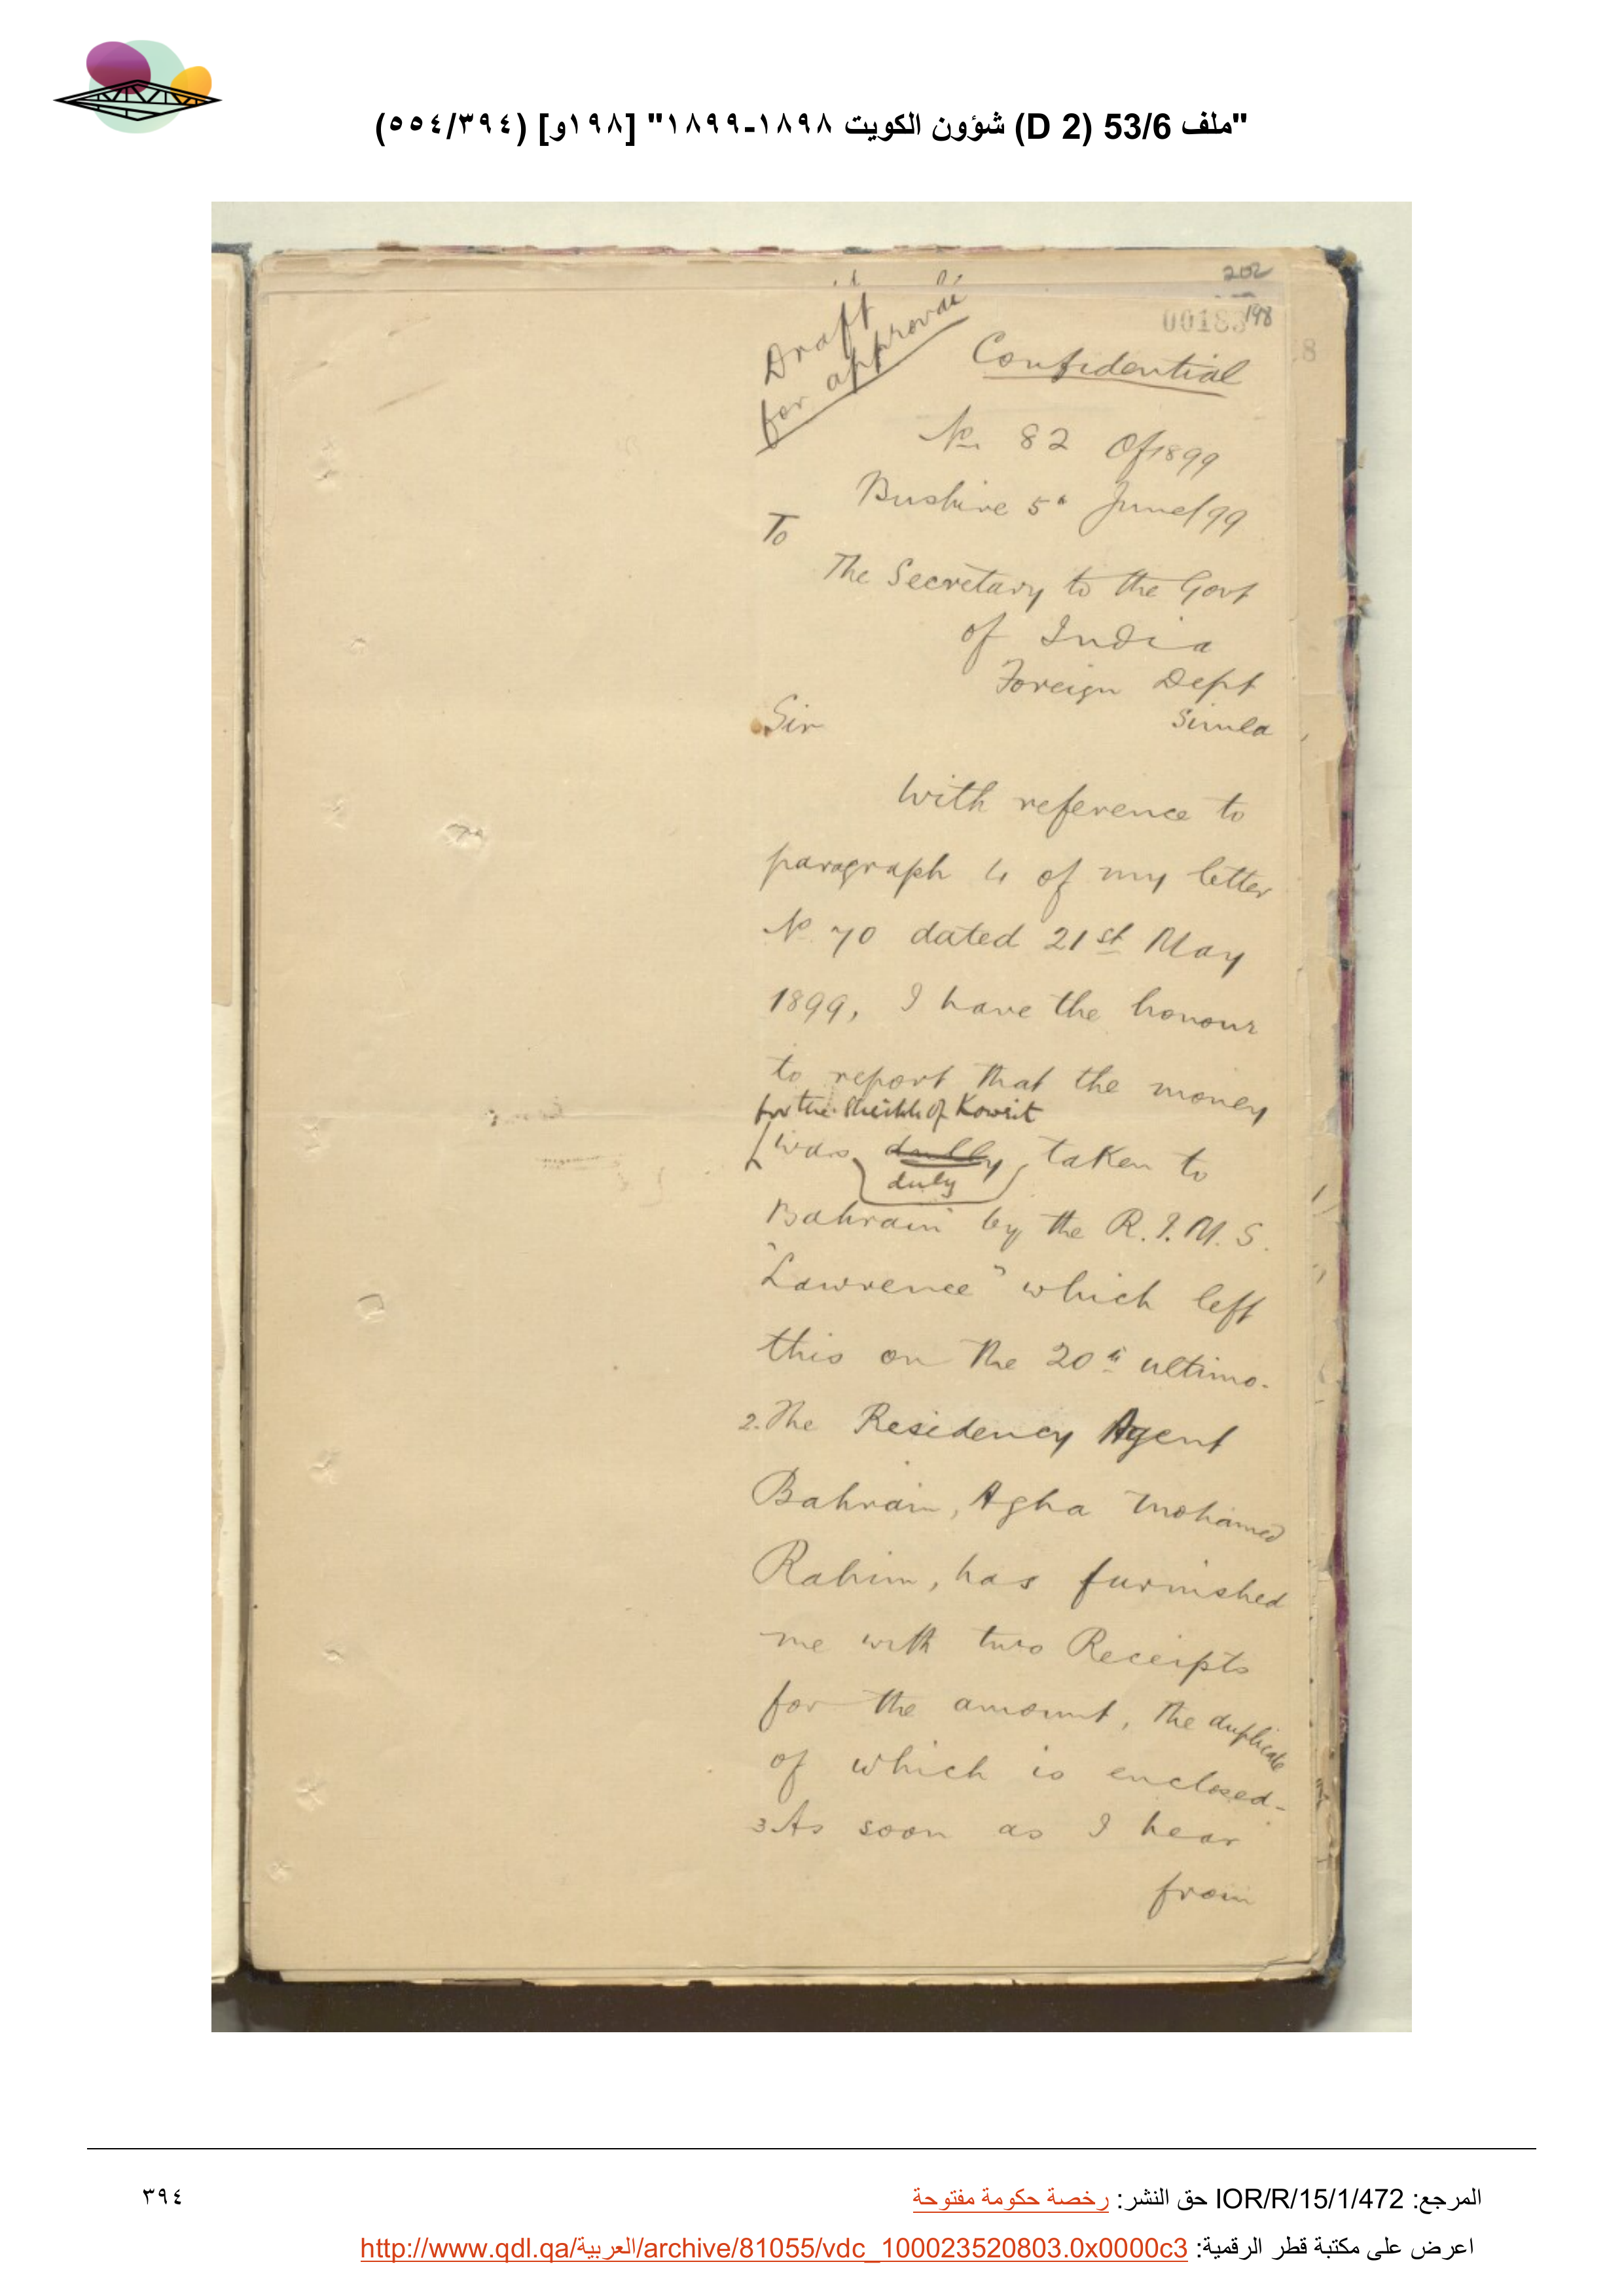 "ملف 53/6 (D 2) شؤون الكويت ١٨٩٨-١٨٩٩" [١٩٨و] (٥٥٤/٣٩٤)
202
00183
198
8
Draft
for approval
Confidential
No. 82 Of 1899
Bushire 5th June/99
To
The Secretary to the Govt
of India
Foreign Dept
Simla
Sir
With reference to
paragraph 4 of my letter
No 70 dated 21st May
1899, I have the honour
to report that the money
for the Sheikh of Koweit
was dully taken to
duly
Bahrain by the R.I.M.S.
"Lawrence" which left
this on the 20th ultimo.
2. The Residency Agent
Bahrain, Agha Mohamed
Rahim, has furnished
me with two Receipts
for the amount, the duplicate
of which is enclosed-
3 As soon as I hear
from
المرجع: IOR/R/15/1/472 حق النشر: رخصة حكومة مفتوحة
٣٩٤
اعرض على مكتبة قطر الرقمية: http://www.qdl.qa/العربية/archive/81055/vdc_100023520803.0x0000c3